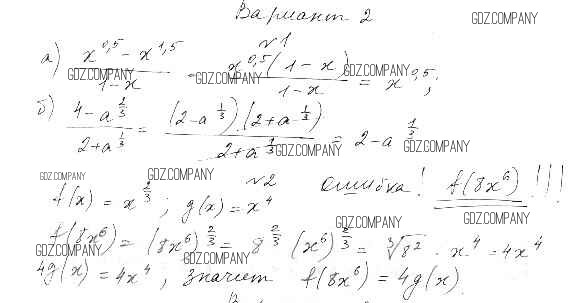 Вариант 2
GDZ.COMPANY
№1
а) x^0,5 − x^1,5 / 1 − x = x^0,5 (1 − x) / 1 − x = x^0,5;
GDZ.COMPANY GDZ.COMPANY GDZ.COMPANY
б) 4 − a^2/3 / 2 + a^1/3 = (2 − a^1/3)(2 + a^1/3) / 2 + a^1/3 = 2 − a^1/3
GDZ.COMPANY GDZ.COMPANY
GDZ.COMPANY GDZ.COMPANY GDZ.COMPANY
№2 ошибка! f(8x^6)!!!
f(x) = x^2/3; g(x) = x^4
GDZ.COMPANY GDZ.COMPANY
f(8x^6) = (8x^6)^2/3 = 8^2/3 (x^6)^2/3 = ∛8^2 · x^4 = 4x^4
GDZ.COMPANY GDZ.COMPANY
4g(x) = 4x^4, значит f(8x^6) = 4g(x)